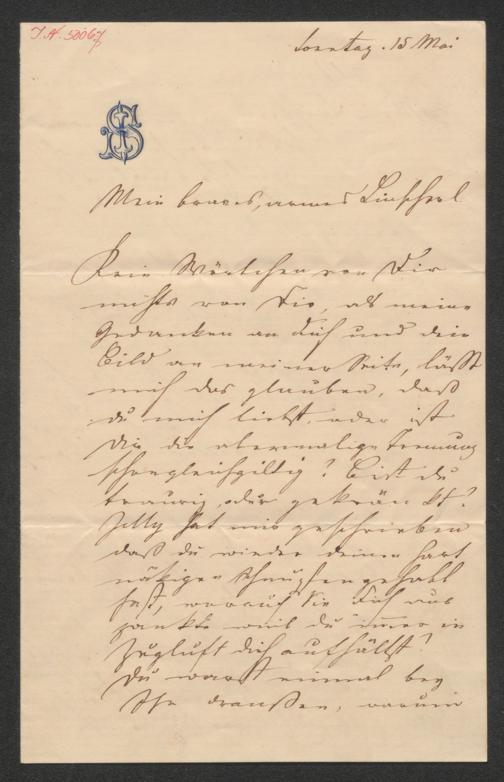 I.N. 50067
Sonntag. 15 Mai
JS
Mein braves, armes
Kein Wörtchen von Dir
nichts von Dir, als meine
Gedanken an Dich und dein
Bild an meiner Seite, läßt
mich das glauben, daß
du mich liebst, oder ist
Dir die abermalige Trennung
schon gleichgiltig? Bist du
traurig oder gekränkt?
hat mir geschrieben
daß du wieder deinen hart
näkigen Schnupfen gehabt
hast, worauf Sie Dich aus
zankte weil du immer in
Zugluft dich aufhältst!
Du warst einmal bey
Ihr draußen, warum